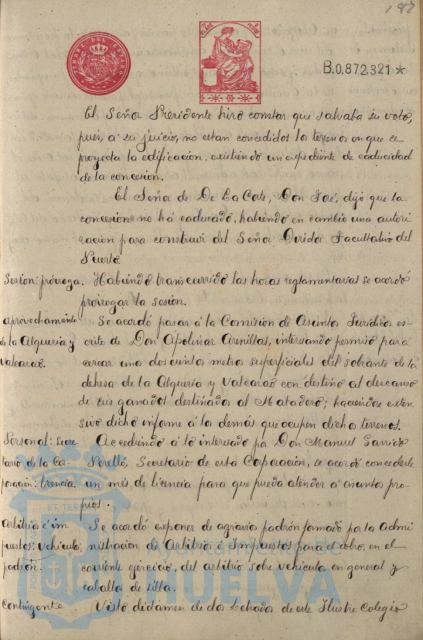 187
B.0.872.321 *
El Señor Presidente hizo constar que salvaba su voto,
pues, a su juicio, no estan concedidos los terrenos en que se
proyecta la edificacion, existiendo un expediente de caducidad
de la concesion.
El Señor de De La Corte, Don José, dijo que la
concesion no há caducado, habiendo en cambio una autori-
zacion para construir del Señor Director Facultativo del
Puerto
Sesion: prórroga. Habiendo transcurrido las horas reglamentarias se acordó
prorrogar la sesion.
aprovechamiento Se acordó pasar á la Comision de Asuntos Juridicos es-
de la Alqueria y crito de Don Apolinar Arenillas, interesando permiso para
Valcaras. cercar unos doscientos metros superficiales del sobrante de la
dehesa de la Alqueria y Valcaras con destino al descanso
de sus ganados destinados al Matadero; haciendose exten-
sivo dicho informe á los demás que ocupen dichos terrenos.
Personal: Secre- Accediendo á lo interesado por Don Manuel Garrido
tario de la Cor- Perelló, Secretario de esta Corporacion, se acordó concederle
poracion: licencia. un mes de licencia para que pueda atender á asuntos pro-
pios.
Arbitrios é im- Se acordó exponer de agravios padrón formado por la Admi-
puestos: vehiculos, nistracion de Arbitrios é Impuestos para el cobro, en el
padrón. corriente ejercicio, del arbitrio sobre vehiculos en general y
caballos de silla.
Contingente Visto dictamen de dos Letrados de este Ilustre Colegio
HUELVA